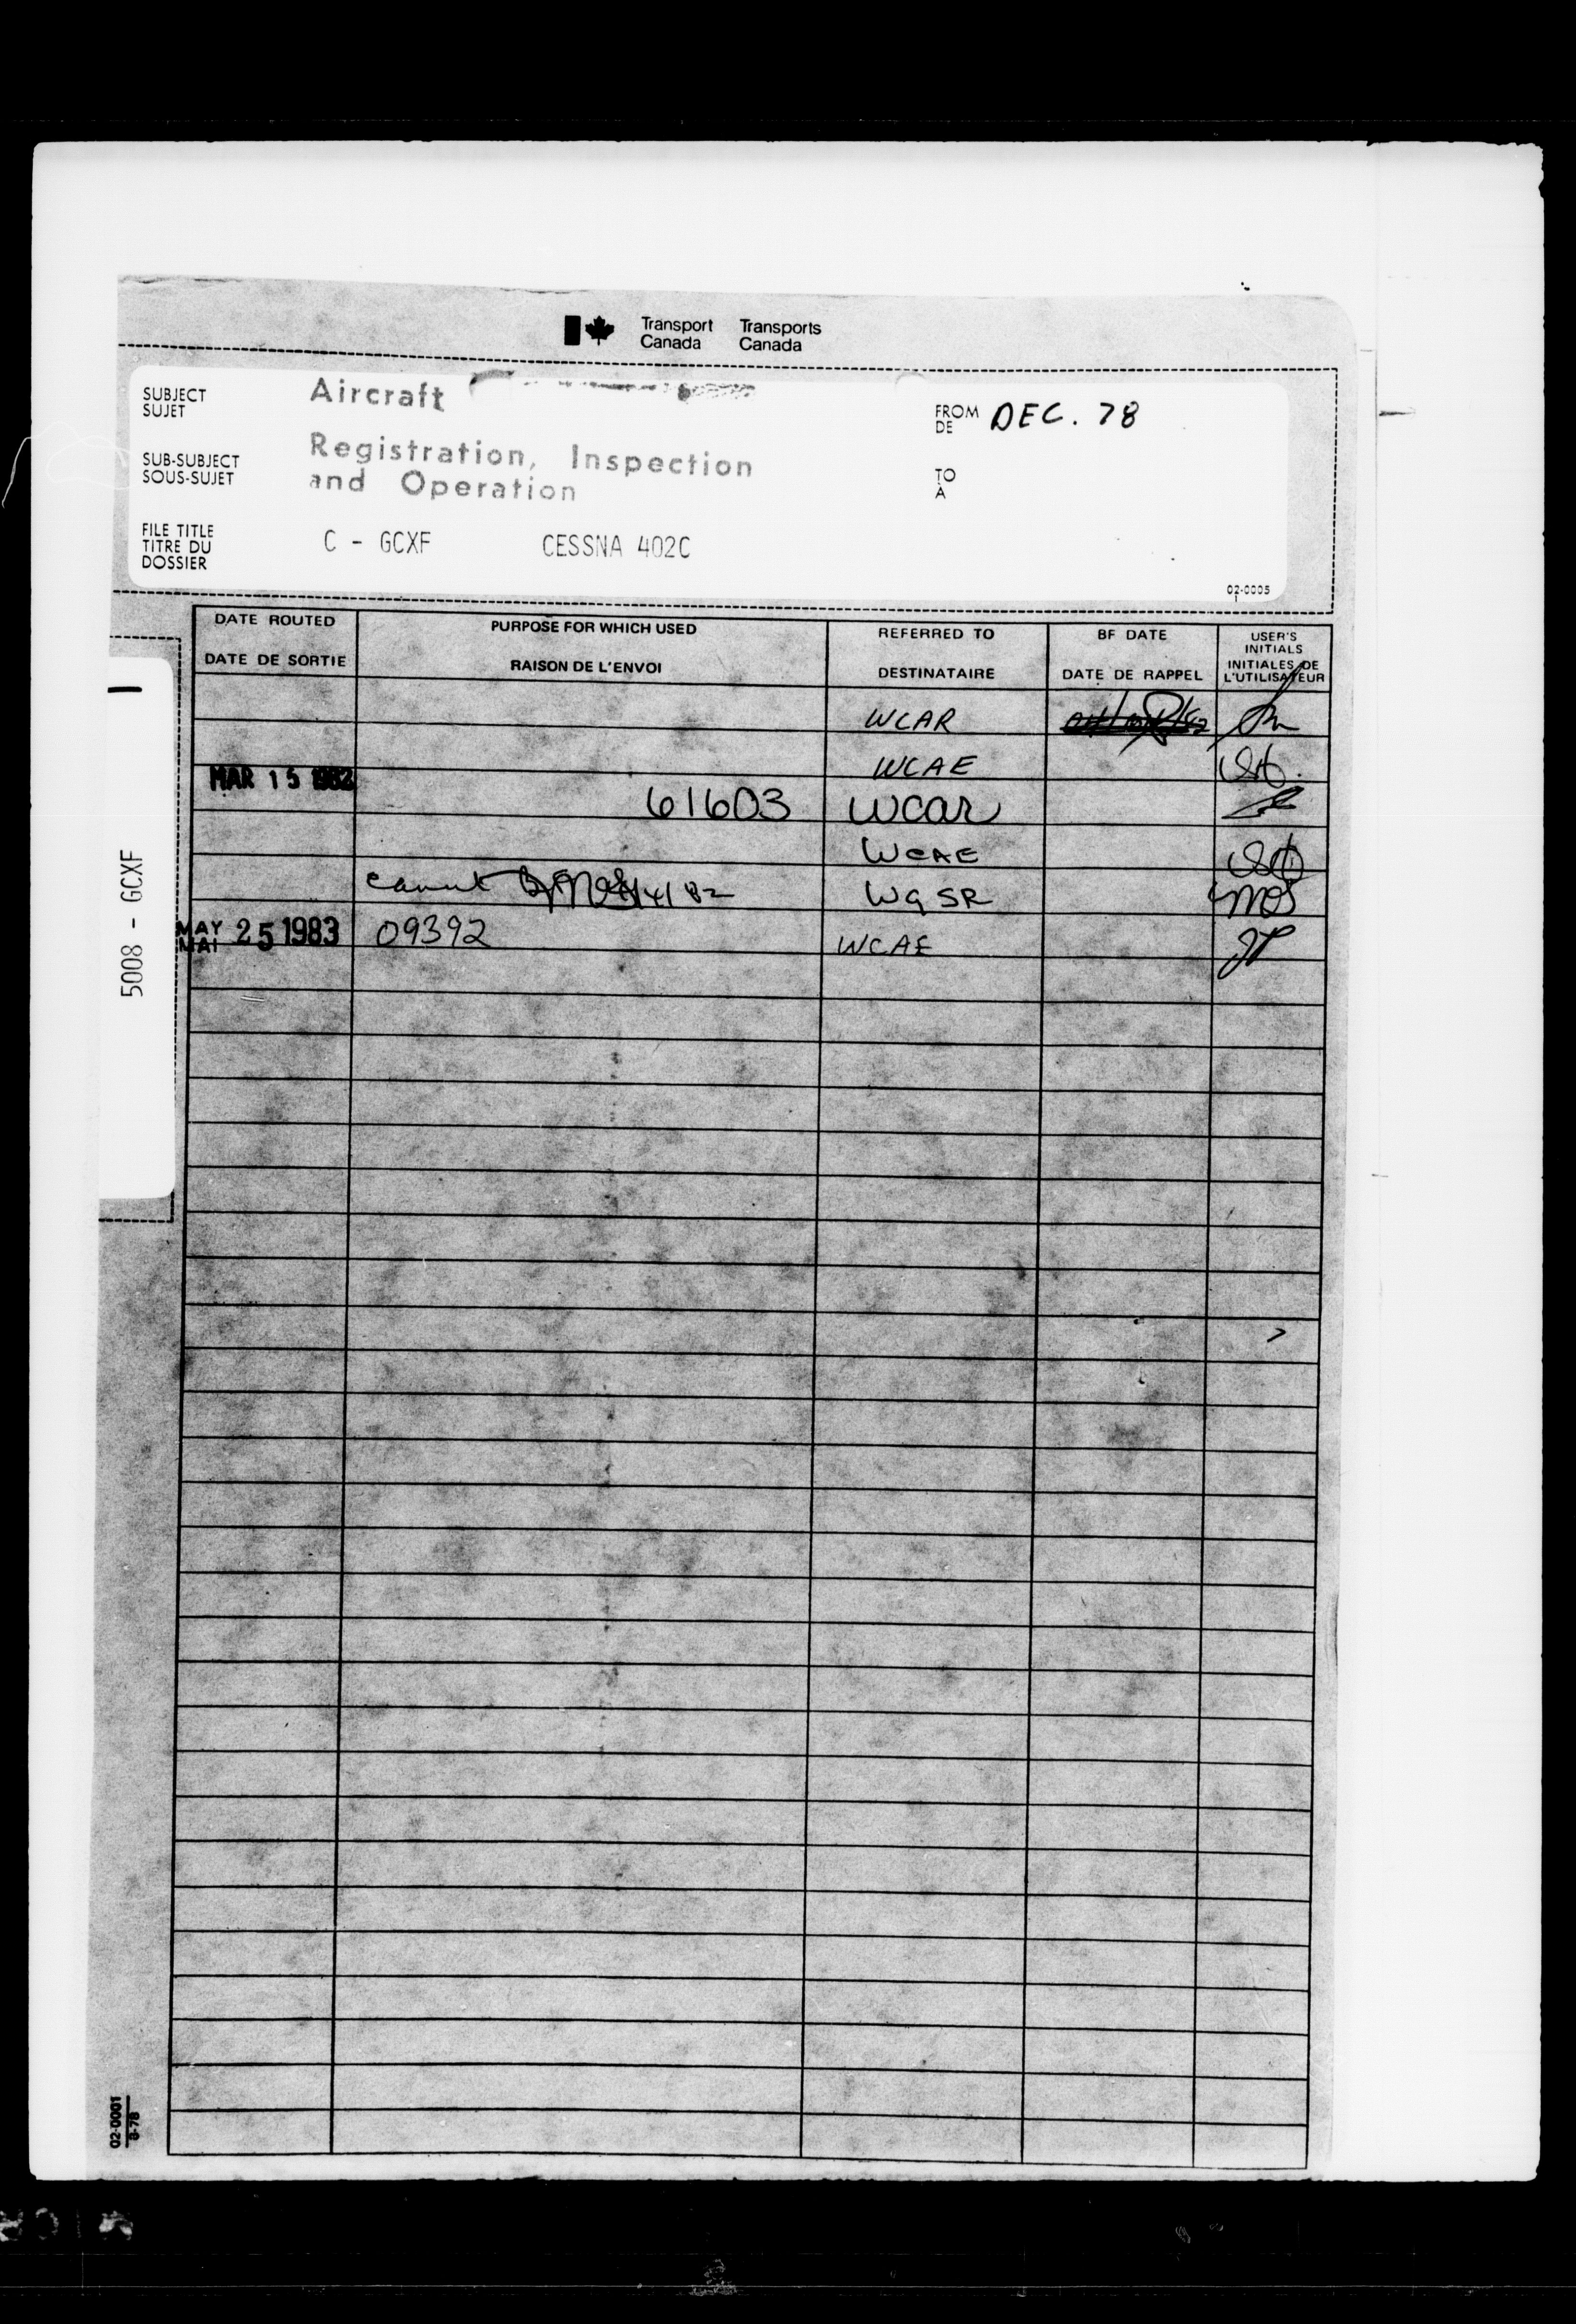 Transport Canada Transports Canada
SUBJECT SUJET Aircraft FROM DE DEC. 78
SUB-SUBJECT SOUS-SUJET Registration, Inspection and Operation TO À
FILE TITLE TITRE DU DOSSIER C - GCXF CESSNA 402C
02-0005
DATE ROUTED PURPOSE FOR WHICH USED REFERRED TO BF DATE USER'S INITIALS
DATE DE SORTIE RAISON DE L'ENVOI DESTINATAIRE DATE DE RAPPEL INITIALES DE L'UTILISATEUR
WCAR
WCAE
MAR 15 1982 61603 WCAR
WCAE
4/82 WGSR MOS
MAY MAI 25 1983 09392 WCAE JP
1
5008 - GCXF
02-0001
8-78